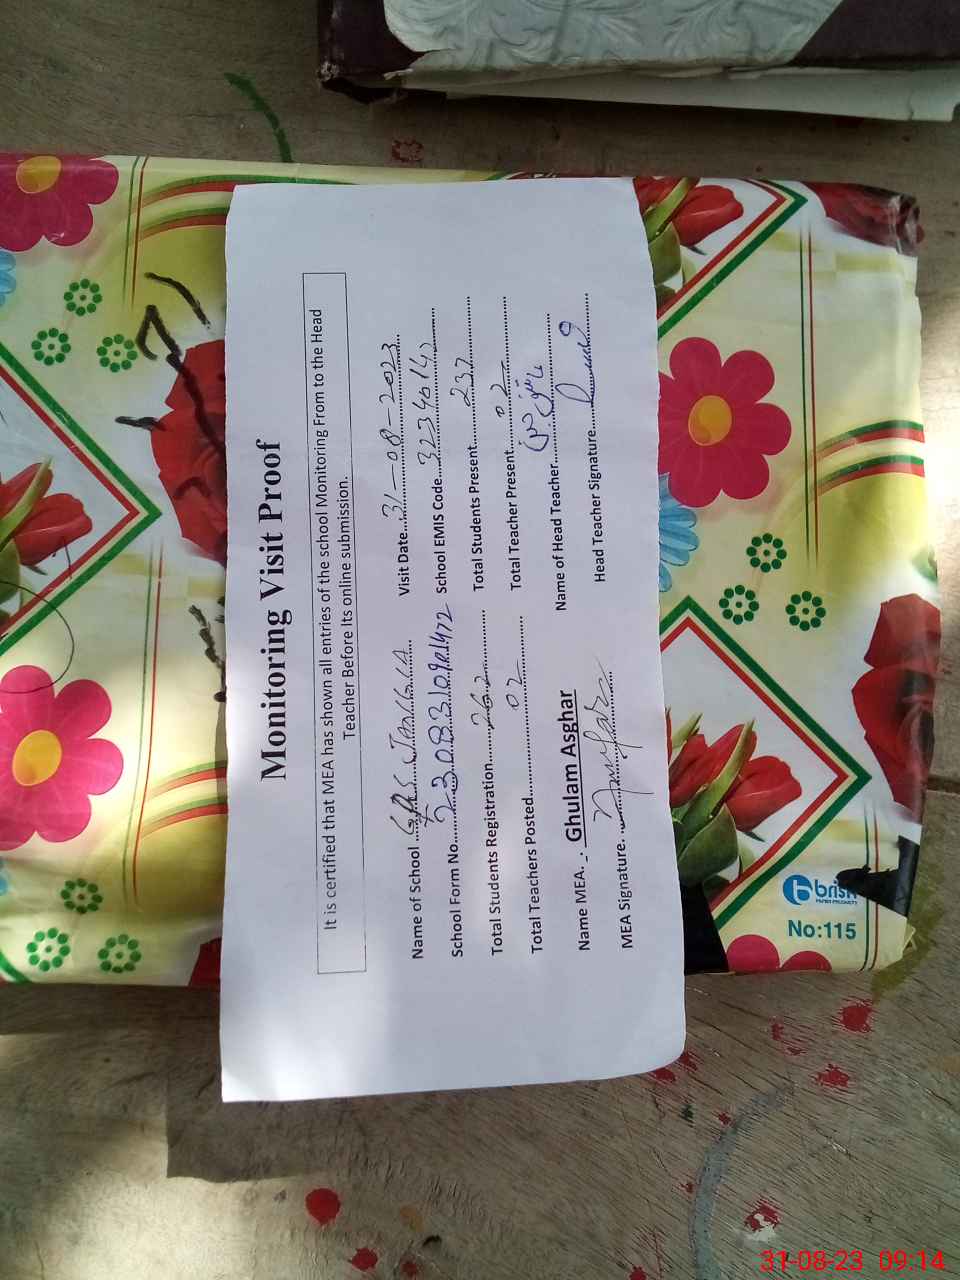 Monitoring Visit Proof
It is certified that MEA has shown all entries of the school Monitoring From to the Head
Teacher Before Its online submission.
Name of School ............ Visit Date...31-08-2023
School Form No............ School EMIS Code............
Total Students Registration...262 Total Students Present...237
Total Teachers Posted...02 Total Teacher Present...02
Name MEA. :- Ghulam Asghar Name of Head Teacher............
MEA Signature. ............ Head Teacher Signature............
brish
PAPER PRODUCTS
No:115
31-08-23 09:14